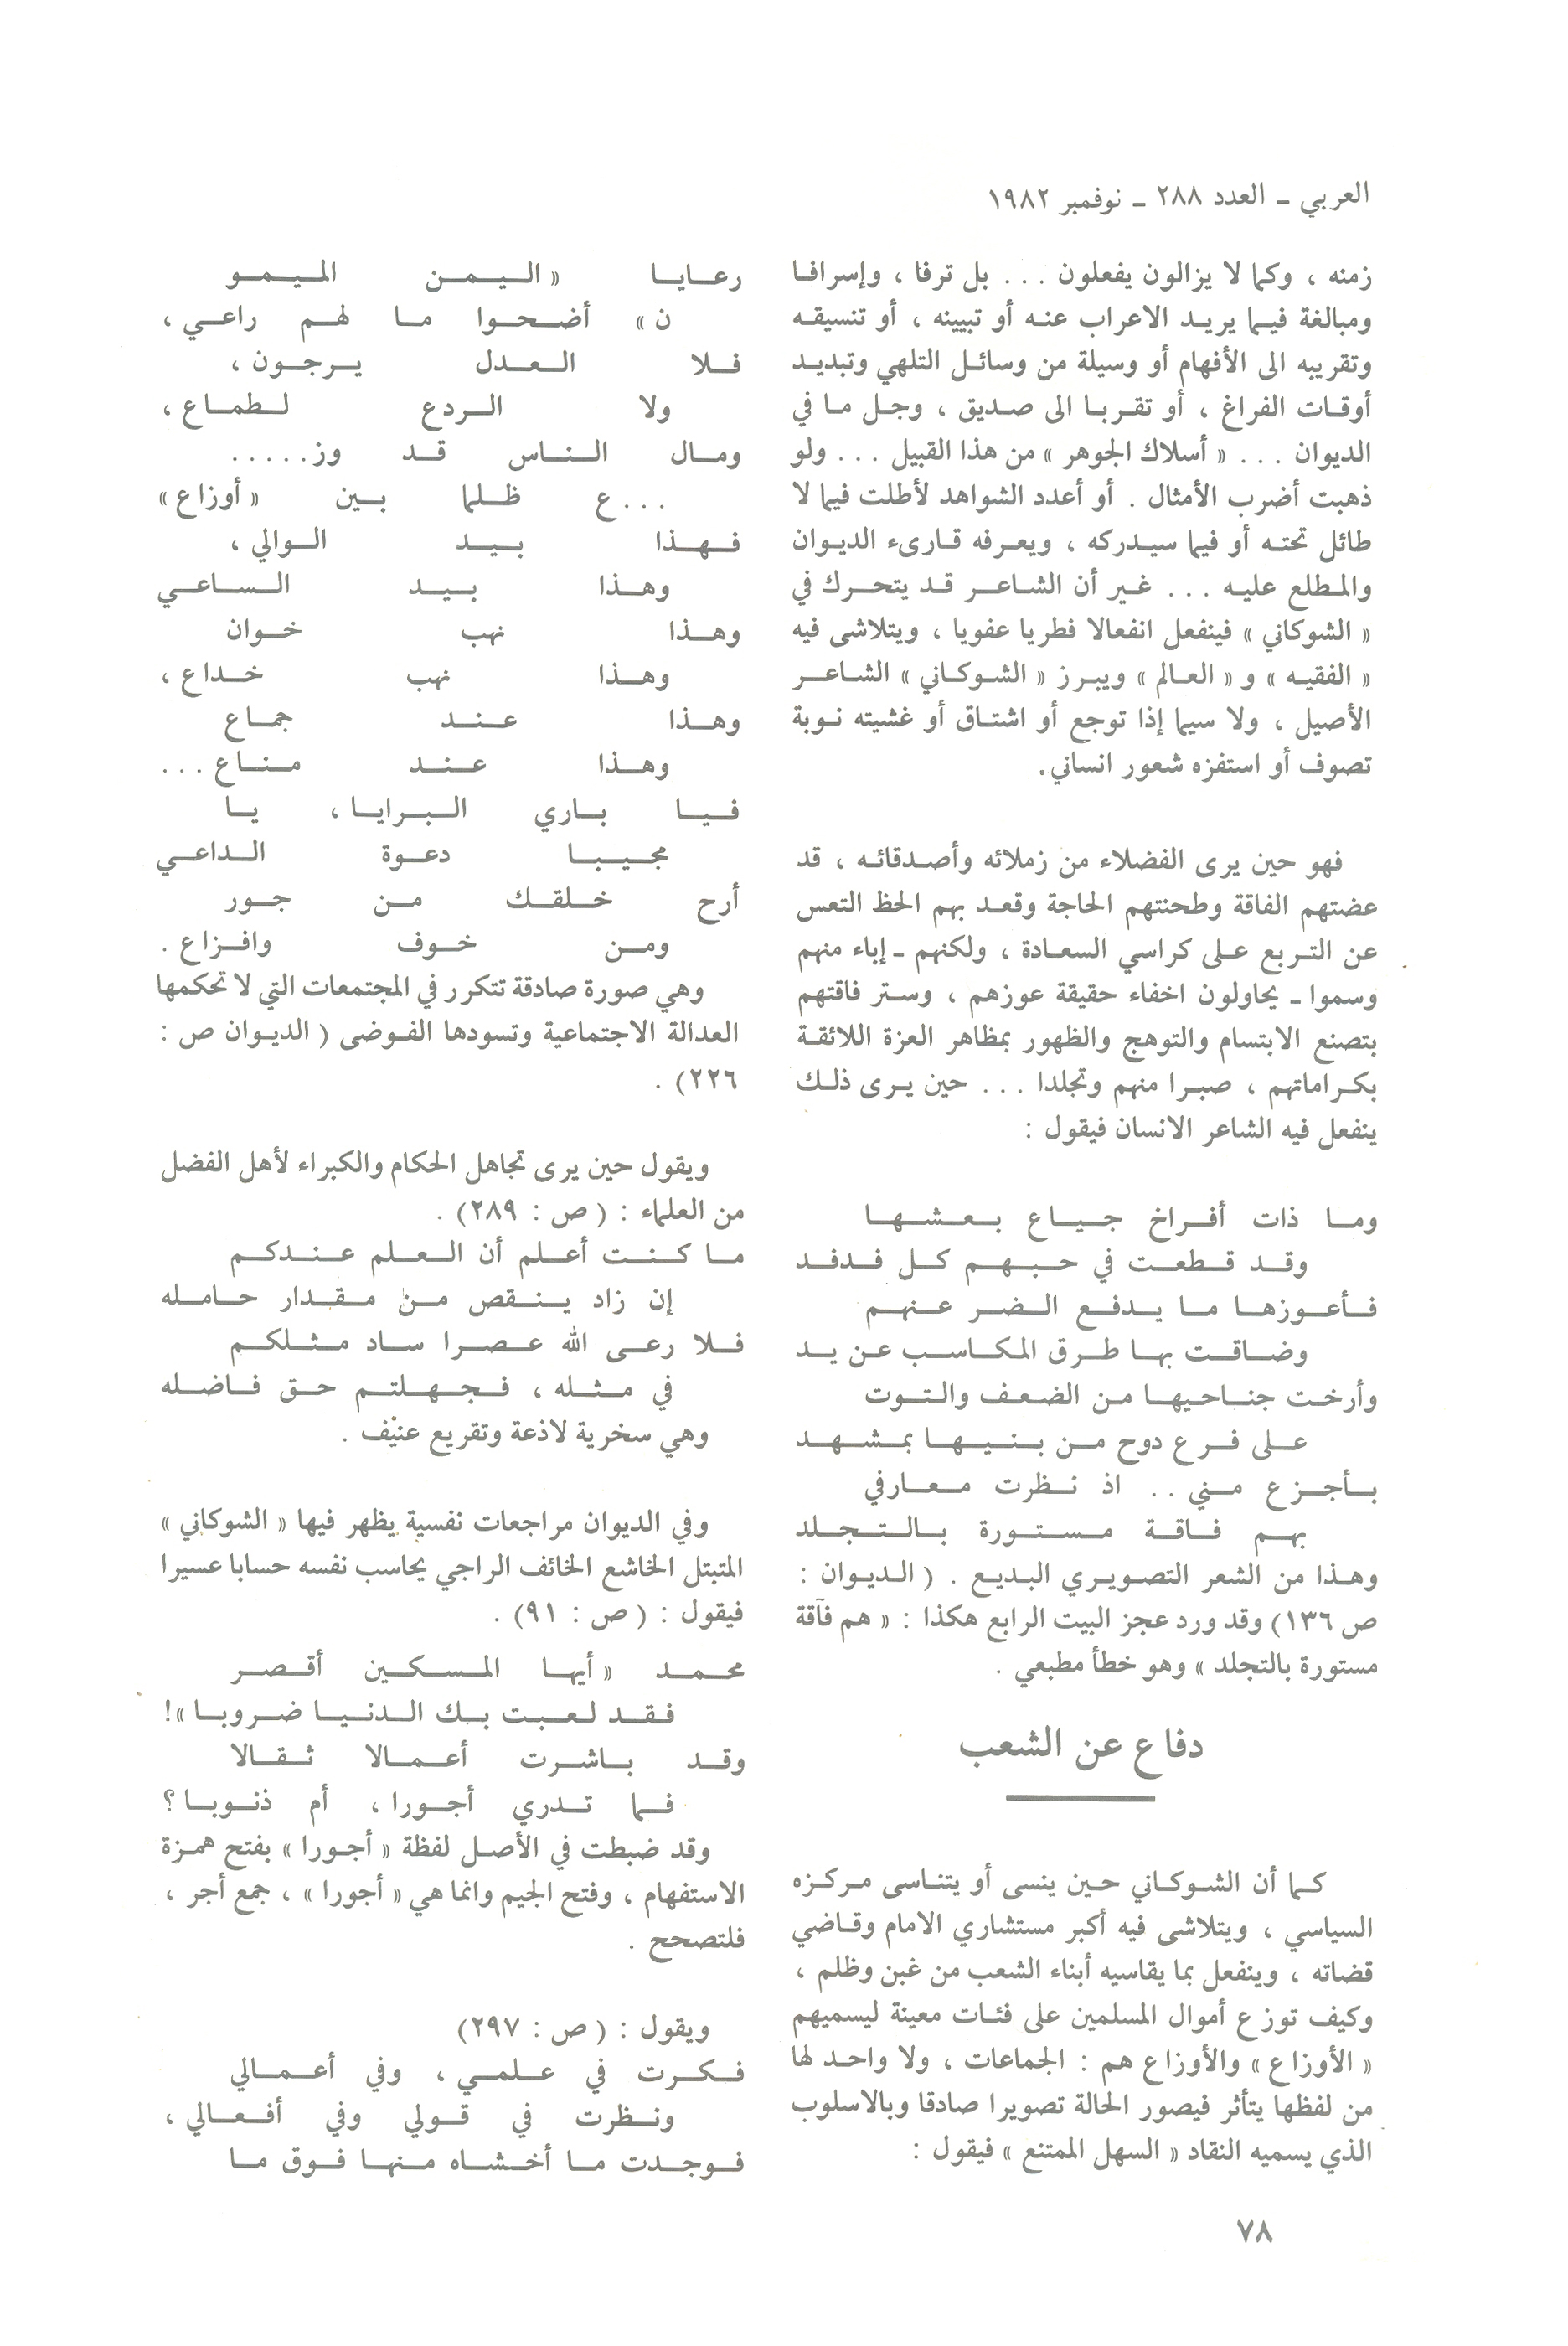 العربي ـ العدد ٢٨٨ ـ نوفمبر ١٩٨٢
زمنه ، وكما لا يزالون يفعلون ... بل ترفا ، وإسرافا
ومبالغة فيما يريد الاعراب عنه أو تبيينه ، أو تنسيقه
وتقريبه الى الأفهام أو وسيلة من وسائل التلهي وتبديد
أوقات الفراغ ، أو تقربا الى صديق ، وجل ما في
الديوان ... « أسلاك الجوهر » من هذا القبيل ... ولو
ذهبت أضرب الأمثال . أو أعدد الشواهد لأطلت فيما لا
طائل تحته أو فيما سيدركه ، ويعرفه قارىء الديوان
والمطلع عليه ... غير أن الشاعر قد يتحرك في
« الشوكاني » فينفعل انفعالا فطريا عفويا ، ويتلاشى فيه
« الفقيه » و « العالم » ويبرز « الشوكاني » الشاعر
الأصيل ، ولا سيما إذا توجع أو اشتاق أو غشيته نوبة
تصوف أو استفزه شعور انساني.
فهو حين يرى الفضلاء من زملائه وأصدقائه ، قد
عضتهم الفاقة وطحنتهم الحاجة وقعد بهم الحظ التعس
عن التربع على كراسي السعادة ، ولكنهم ـ إباء منهم
وسموا ـ يحاولون اخفاء حقيقة عوزهم ، وستر فاقتهم
بتصنع الابتسام والتوهج والظهور بمظاهر العزة اللائقة
بكراماتهم ، صبرا منهم وتجلدا ... حين يرى ذلك
ينفعل فيه الشاعر الانسان فيقول :
وما ذات أفراخ جياع بعشها
وقد قطعت في حبهم كل فدفد
فأعوزها ما يدفع الضر عنهم
وضاقت بها طرق المكاسب عن يد
وأرخت جناحيها من الضعف والتوت
على فرع دوح من بنيها بمشهد
بأجزع مني .. اذ نظرت معارفي
بهم فاقة مستورة بالتجلد
وهذا من الشعر التصويري البديع . ( الديوان :
ص ١٣٦) وقد ورد عجز البيت الرابع هكذا : « هم فآقة
مستورة بالتجلد » وهو خطأ مطبعي .
دفاع عن الشعب
كما أن الشوكاني حين ينسى أو يتناسى مركزه
السياسي ، ويتلاشى فيه أكبر مستشاري الامام وقاضي
قضاته ، وينفعل بما يقاسيه أبناء الشعب من غبن وظلم ،
وكيف توزع أموال المسلمين على فئات معينة ليسميهم
« الأوزاع » والأوزاع هم : الجماعات ، ولا واحد لها
من لفظها يتأثر فيصور الحالة تصويرا صادقا وبالاسلوب
الذي يسميه النقاد « السهل الممتنع » فيقول :
رعايا « اليمن الميمو
ن » أضحوا ما لهم راعي ،
فلا العدل يرجون ،
ولا الردع لطماع ،
ومال الناس قد وز.....
...ع ظلما بين « أوزاع »
فهذا بيد الوالي ،
وهذا بيد الساعي
وهذا نهب خوان
وهذا نهب خداع ،
وهذا عند جماع
وهذا عند مناع ...
فيا باري البرايا ، يا
مجيبا دعوة الداعي
أرح خلقك من جور
ومن خوف وافزاع .
وهي صورة صادقة تتكرر في المجتمعات التي لا تحكمها
العدالة الاجتماعية وتسودها الفوضى ( الديوان ص :
٢٢٦) .
ويقول حين يرى تجاهل الحكام والكبراء لأهل الفضل
من العلماء : ( ص : ٢٨٩) .
ما كنت أعلم أن العلم عندكم
إن زاد ينقص من مقدار حامله
فلا رعى الله عصرا ساد مثلكم
في مثله ، فجهلتم حق فاضله
وهي سخرية لاذعة وتقريع عنيف .
وفي الديوان مراجعات نفسية يظهر فيها « الشوكاني »
المتبتل الخاشع الخائف الراجي يحاسب نفسه حسابا عسيرا
فيقول : ( ص : ٩١) .
محمد « أيها المسكين أقصر
فقد لعبت بك الدنيا ضروبا »!
وقد باشرت أعمالا ثقالا
فما تدري أجورا ، أم ذنوبا ؟
وقد ضبطت في الأصل لفظة « أجورا » بفتح همزة
الاستفهام ، وفتح الجيم وانما هي « أجورا » ، جمع أجر ،
فلتصحح .
ويقول : ( ص : ٢٩٧)
فكرت في علمي ، وفي أعمالي
ونظرت في قولي وفي أفعالي ،
فوجدت ما أخشاه منها فوق ما
٧٨